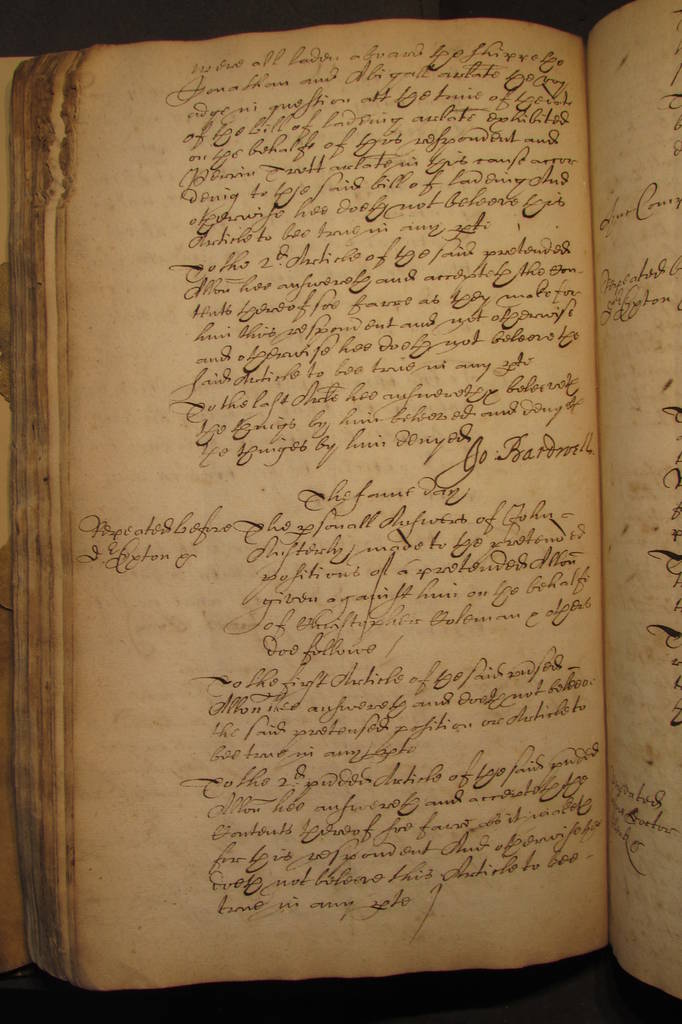 were all laden aboard the shippe the
Jonathan and Abigall arlate the voy
adge in question att the time of the date
of the bill of ladeing arlate exhibited
on the behalfe of this respondent and
Perrin Trott arlate in this cause accor
deing to the said bill of ladeing And
otherwise hee doeth not beleeve this
Article to bee true in any pte
To the 2d. Article of the said pretended
Allon hee answereth and accepteth the Con-
tents thereof soe farre as they make for
him this respondent and not otherwise
and otherwise hee doeth not beleeve the
said Article to bee true in any pte
To the last Arle hee answereth & beleeveth
the things by him beleeved and denyeth
the thinges by him denyed
Jo: Bardwell
The same day
Repeated before
dr. Clepton &
The psonall Answers of John
Austerly made to the pretended
positions of a pretended Allon
given against him on the behalfe
of Christopher Coleman & others
doe followe /
To the first Article of the said ptended
Allon hee answereth and doeth not beleeve
the said pretensed position or Article to
bee true in any pte
To the 2d. ptended Article of the said ptended
Allon hee answereth and accepteth the
Contents thereof soe farre as it maketh
for this respondent And otherwise hee
doeth not beleeve this Article to bee
true in any pte /
Repeated